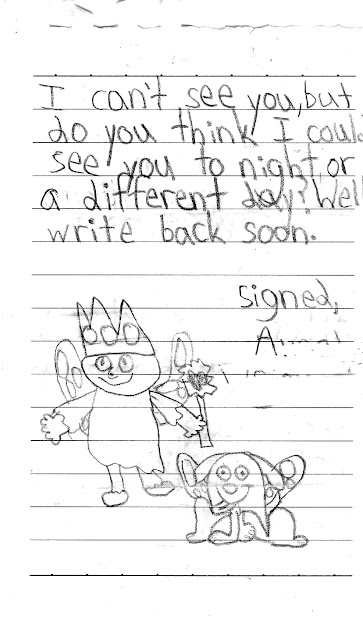 I can't see you, but
do you think I could
see you to night or
a different day? Well
write back soon.
signed,